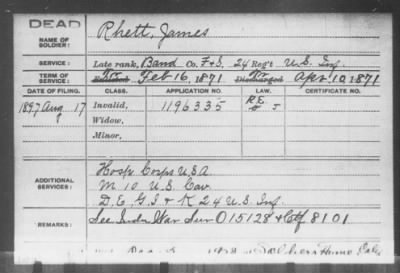 DEAD
NAME OF SOLDIER: Rhett, James
SERVICE: Late rank, Band Co. F+S, 24 Reg't U.S. Inf.
TERM OF SERVICE: Enlisted Feb 16, 1871 Discharged Apr. 10, 1871
DATE OF FILING. CLASS. APPLICATION NO. LAW. CERTIFICATE NO.
1897 Aug 17 Invalid, 1196335 R.E.
Widow,
Minor,
ADDITIONAL SERVICES: Hosp Corps U.S.A.
M 10 U.S. Cav.
D. E. G. I + K 24 U.S. Inf.
REMARKS: See Indn War Sur O 15128 + Ctf 8101
Home